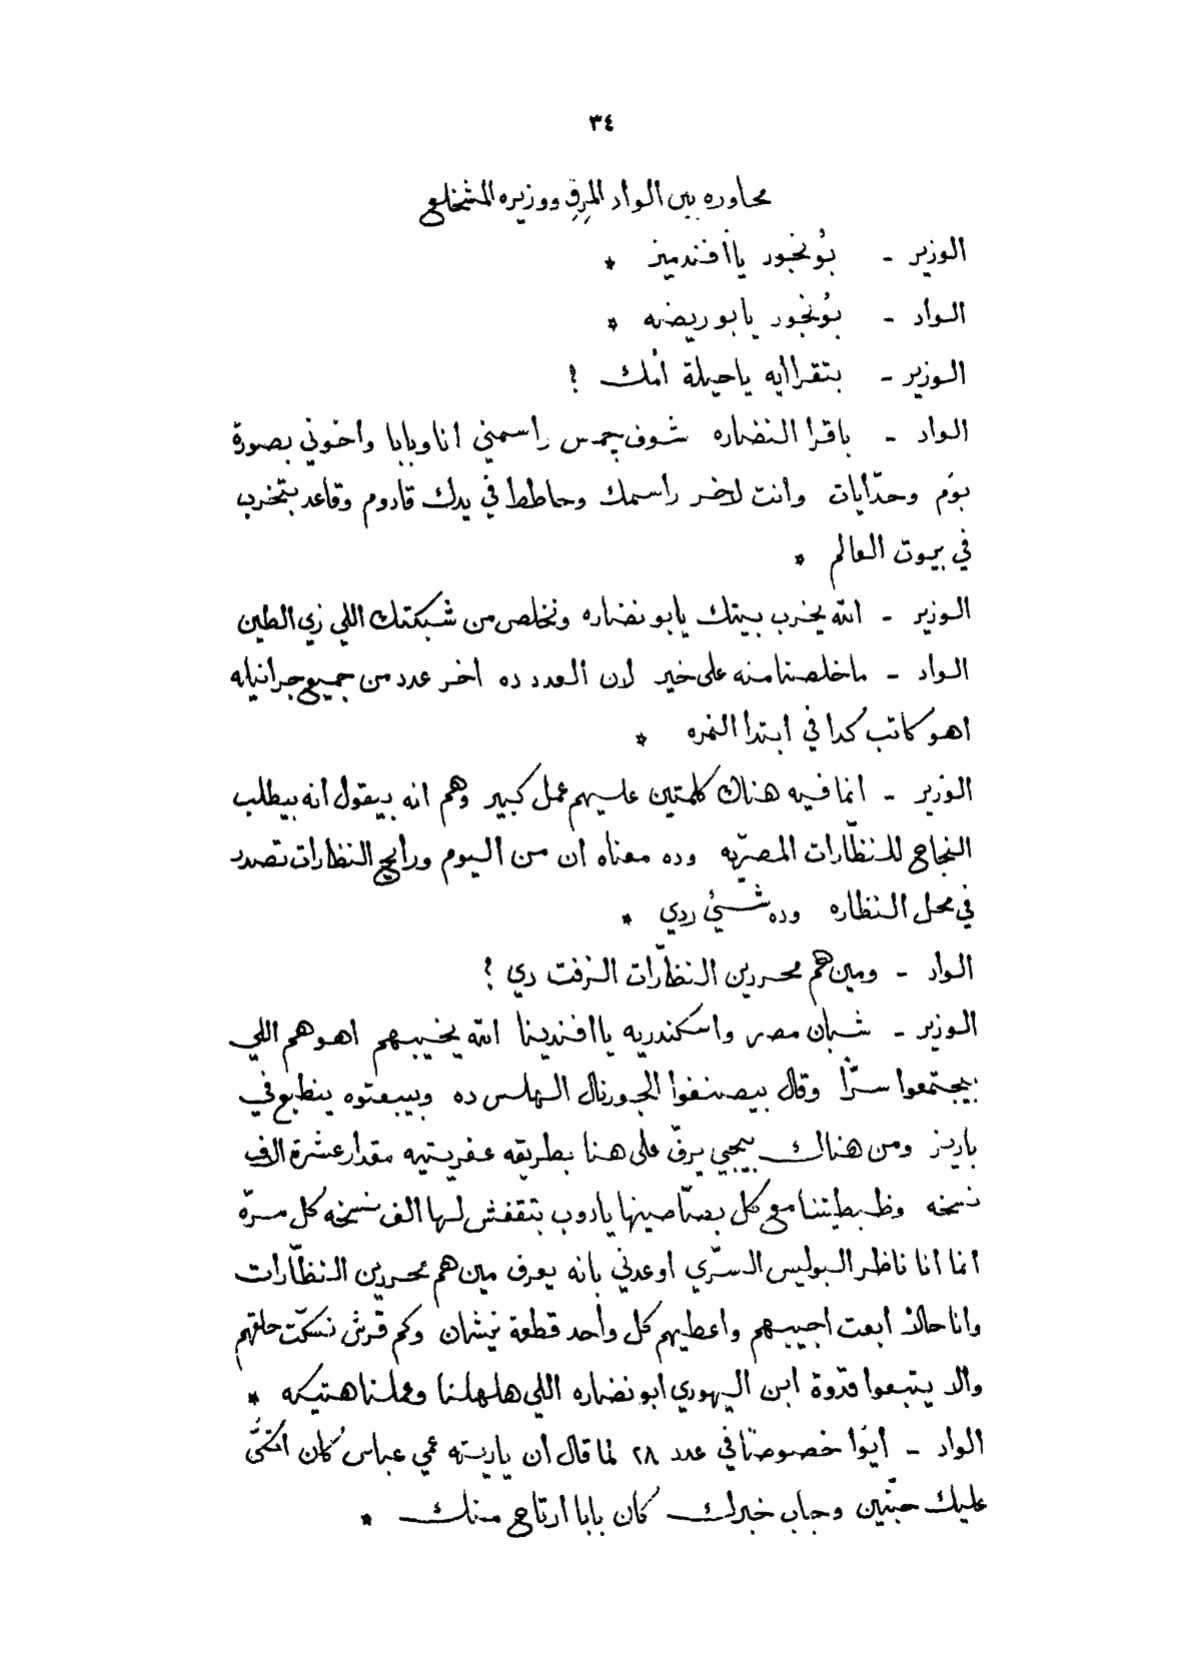 ٣٤
محاوره بين الواد المرق ووزيره المشخلع
الوزير - بُونجور يا أفندميز *
الواد - بُونجور يا بو ريضه *
الوزير - بتقرا ايه ياحيلة أمك ؟
الواد - باقرا النضاره شوف جمس راسمني انا وبابا واخوني بصورة
بوم وحدّايات وانت لاخر راسمك وحاطط في يدك قادوم وقاعد بتخرب
في بيوت العالم *
الوزير - الله يخرب بيتك يابو نضاره ونخلص من شبكتك اللي زي الطين
الواد - ماخلصنا منه على خير لان العدد ده اخر عدد من جميع جرانيله
اهو كاتب كدا في ابتدا النمره *
الوزير - انما فيه هناك كلمتين عليهم عمل كبير وهم انه بيقول انه بيطلب
النجاح للنظّارات المصريّه وده معناه ان من اليوم ورايح النظارات تصدر
في محل النظاره وده شئ ردي *
الواد - ومين هم محررين النظّارات الزفت دي ؟
الوزير - شبان مصر واسكندريه يا افندينا الله يخيبهم اهو هم اللي
بيجتمعوا سرًّا وقال بيصنفوا الجورنال الهلس ده ويبعتوه ينطبع في
باريز ومن هناك بيجي يرقّ على هنا بطريقه عفريتيه مقدار عشرة الاف
نسخه وظبطيتنا مع كل بصّاصينها يادوب بتقفش لها الف نسخه كل مرّه
انما انا ناظر البوليس السرّي اوعدني بانه يعرف مين هم محررين النظّارات
وانا حالاً ابعت اجيبهم واعطيهم كل واحد قطعة نيشان وكم قرش نسكّت حلقهم
والا يتبعوا قدوة ابن اليهودي ابو نضاره اللي هلهلنا وعملنا هتيكه *
الواد - ايوا خصوصًا في عدد ٢٨ لما قال ان ياريته عمي عباس كان اتكّى
عليك حبّتين وجاب خبرك كان بابا ارتاح منك *